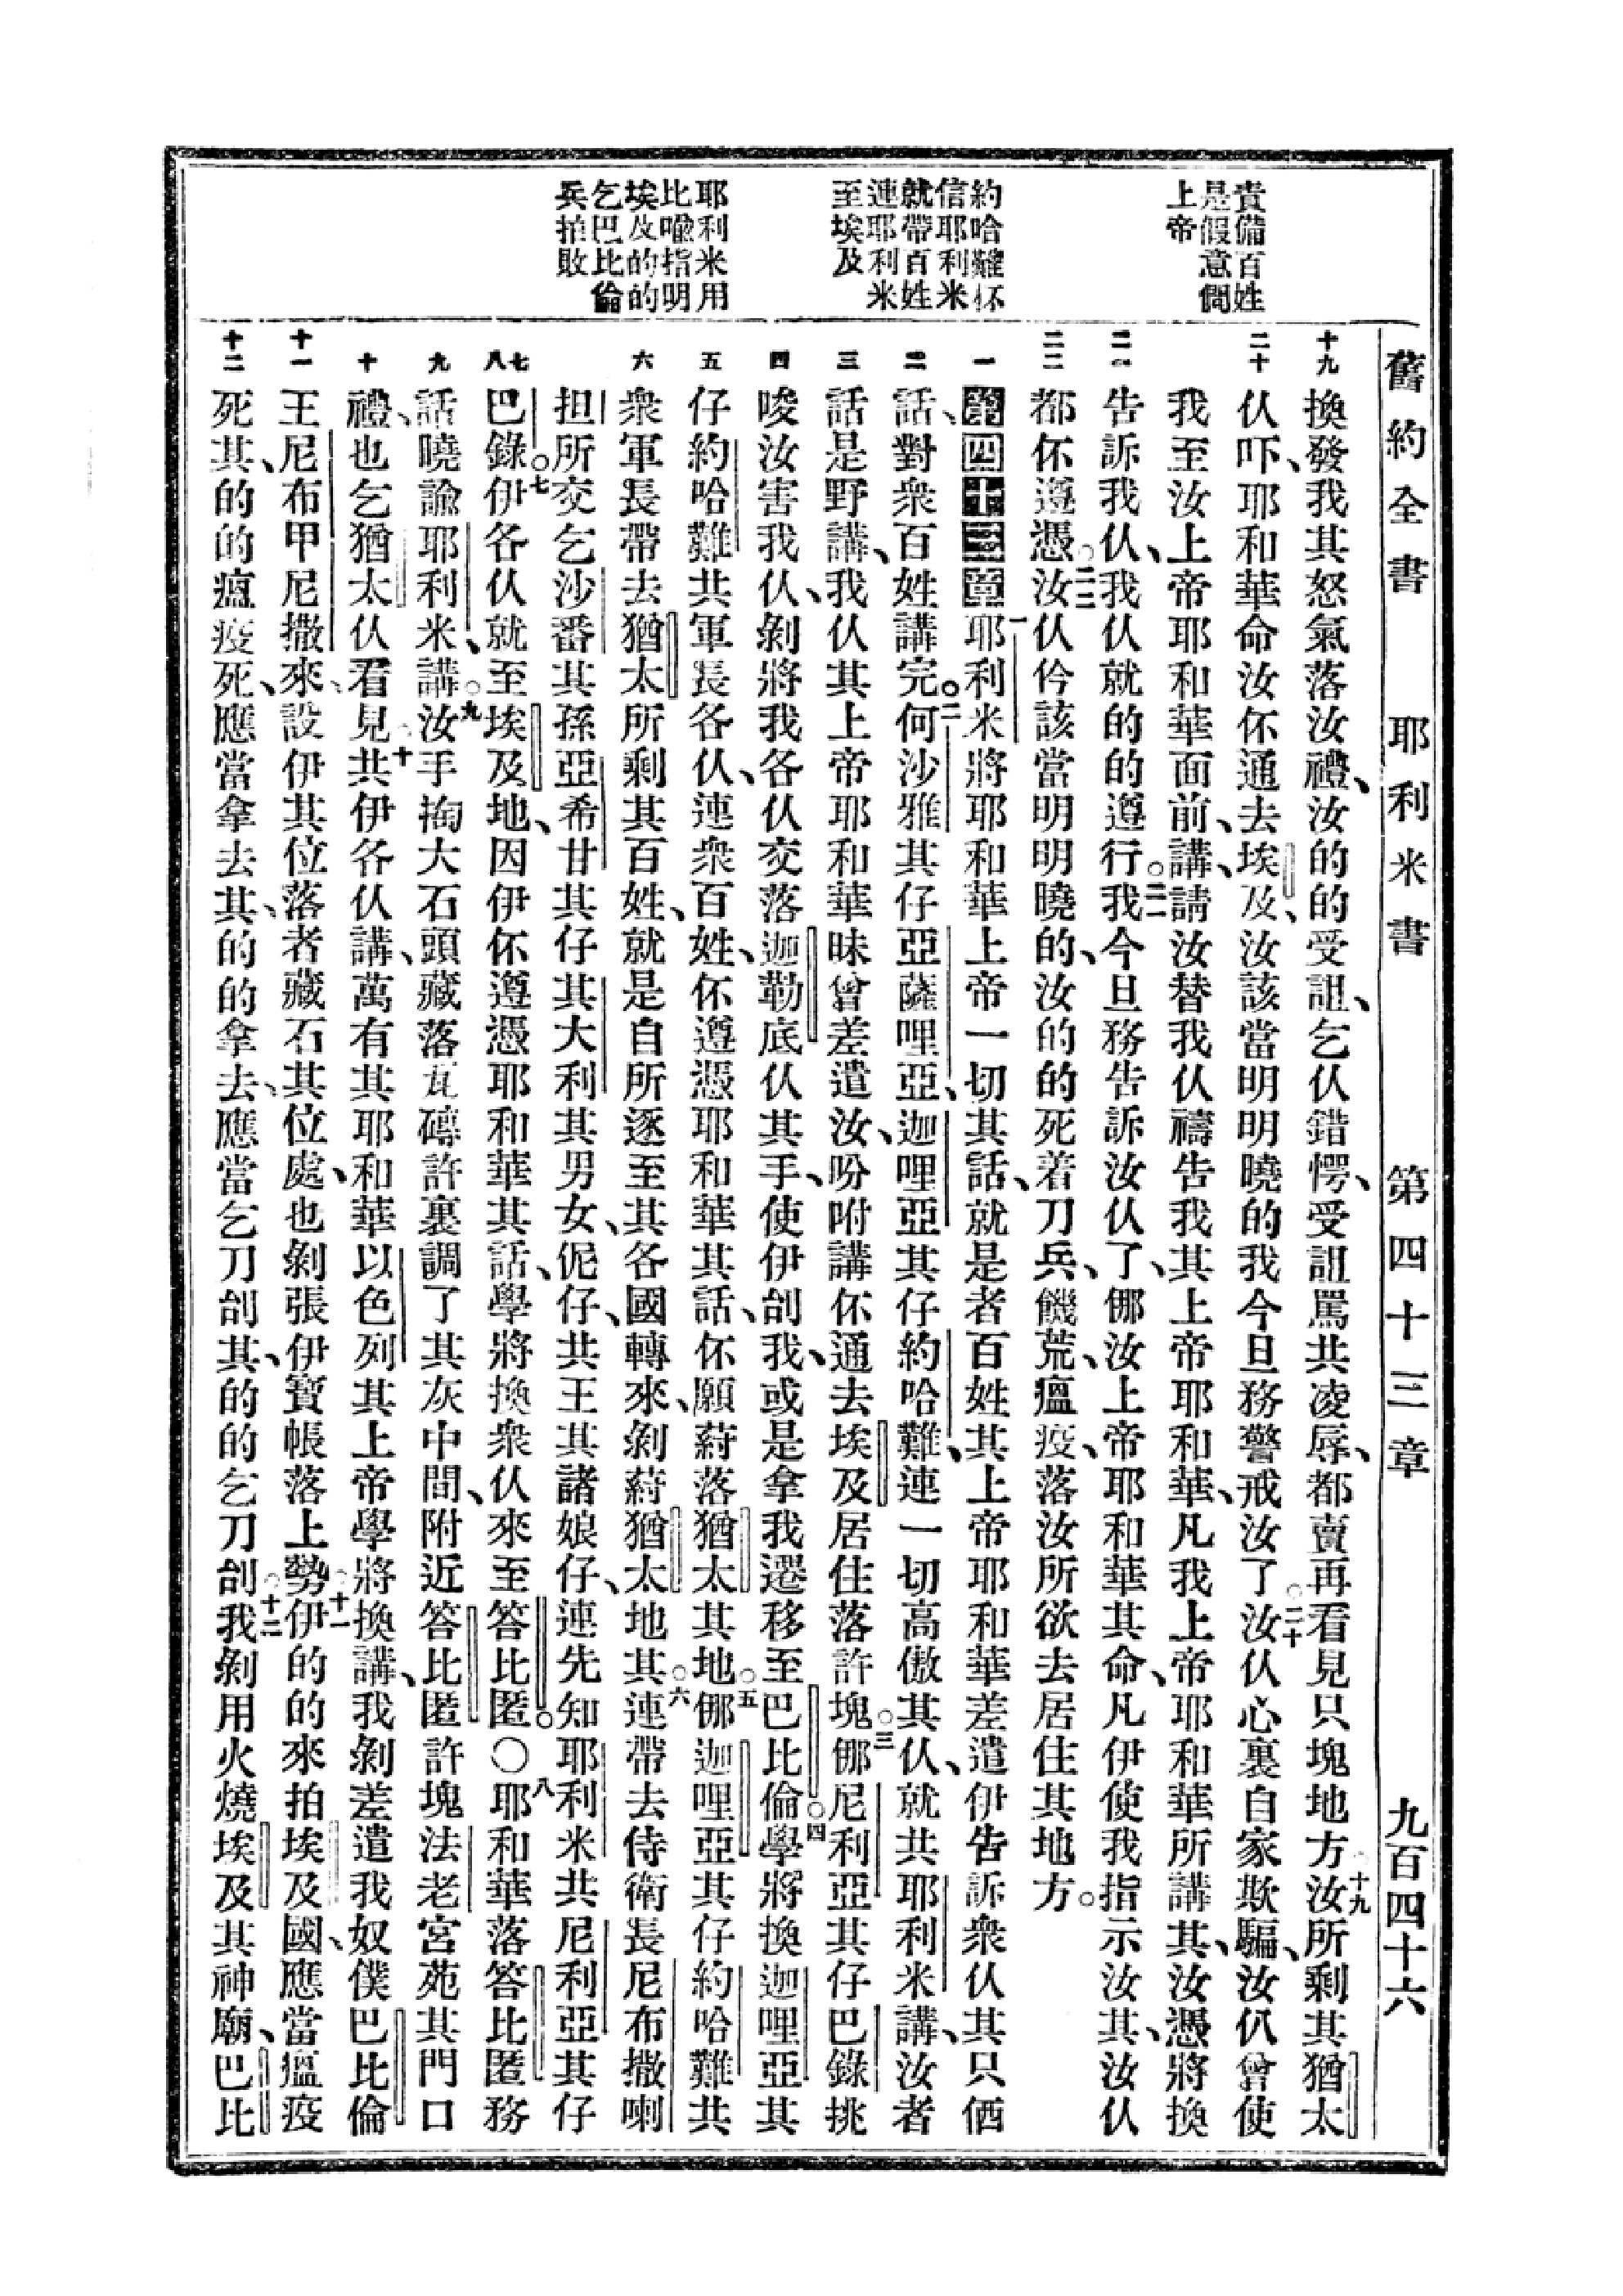 舊約全書 耶利米書 第四十三章 九百四十六
責備百姓
是假意問
上帝
約哈難伓
信耶利米
就帶百姓
連耶利米
至埃及
耶利米用
比喻指明
埃及的的
乞巴比倫
兵拍敗
十九 換發我其怒氣落汝禮、汝的的受詛、乞伩錯愕、受詛罵共凌辱、都賣再看見只塊地方○十九汝所剩其猶太
二十 伩吓、耶和華命汝伓通去埃及、汝該當明明曉的我今旦務警戒汝了○二十汝伩心裏自家欺騙、汝伩曾使
我至汝上帝耶和華面前、講、請汝替我伩禱告我其上帝耶和華、凡我上帝耶和華所講其、汝憑將換
二一 告訴我伩、我伩就的的遵行○二一我今旦務告訴汝伩了、㑚汝上帝耶和華其命、凡伊使我指示汝其、汝伩
二二 都伓遵憑○二二汝伩仱該當明明曉的、汝的的死着刀兵、饑荒、瘟疫、落汝所欲去居住其地方。
一 第四十三章 一耶利米將耶和華上帝一切其話、就是者百姓其上帝耶和華差遣伊告訴衆伩其只仴
二 話、對衆百姓講完○二何沙雅其仔亞薩哩亞、迦哩亞其仔約哈難、連一切高傲其伩、就共耶利米講、汝者
三 話是野講、我伩其上帝耶和華昧曾差遣汝、吩咐講伓通去埃及居住落許塊○三㑚尼利亞其仔巴錄挑
四 唆汝害我伩、剝將我各伩交落迦勒底伩其手、使伊刣我、或是拿我遷移至巴比倫○四學將換迦哩亞其
五 仔約哈難共軍長各伩、連衆百姓、伓遵憑耶和華其話、伓願葤落猶太其地○五㑚迦哩亞其仔約哈難共
六 衆軍長帶去猶太所剩其百姓、就是自所逐至其各國轉來、剝葤猶太地其○六連帶去侍衛長尼布撒喇
担所交乞沙番其孫亞希甘其仔其大利其男女、伲仔、共王其諸娘仔、連先知耶利米共尼利亞其仔
七八 巴錄○七伊各伩就至埃及地、因伊伓遵憑耶和華其話、學將換衆伩來至答比匿。〇八耶和華落答比匿務
九 話曉諭耶利米、講○九汝手掏大石頭藏落瓦磚許裏調了其灰中間、附近答比匿許塊法老宮苑其門口
十 禮、也乞猶太伩看見○十共伊各伩講、萬有其耶和華以色列其上帝學將換講、我剝差遣我奴僕巴比倫
十一 王尼布甲尼撒來、設伊其位落者藏石其位處、也剝張伊寶帳落上勢○十一伊的的來拍埃及國、應當瘟疫
十二 死其、的的瘟疫死、應當拿去其、的的拿去、應當乞刀刣其、的的乞刀刣○十二我剝用火燒埃及其神廟、巴比